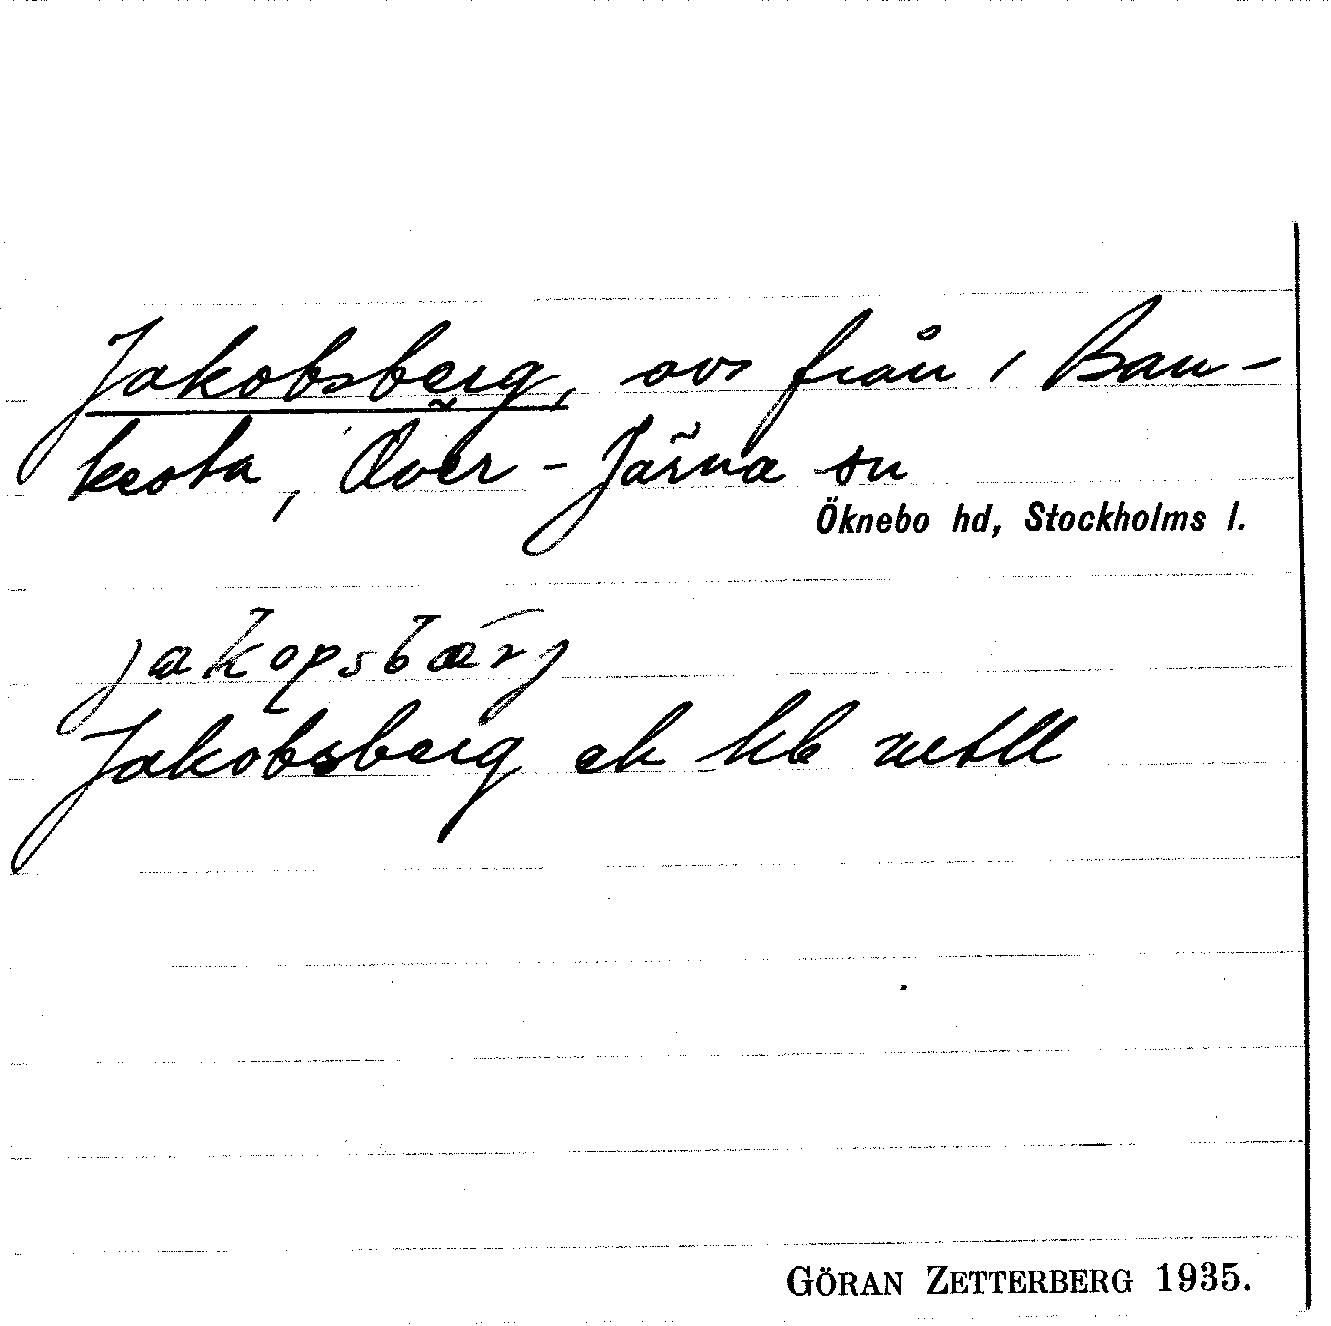 Jakobsberg, avs från 1 Ban-
kesta, Över-Järna sn
Öknebo hd, Stockholms l.
jakopsbærj
Jakobsberg ek kb
GÖRAN ZETTERBERG 1935.